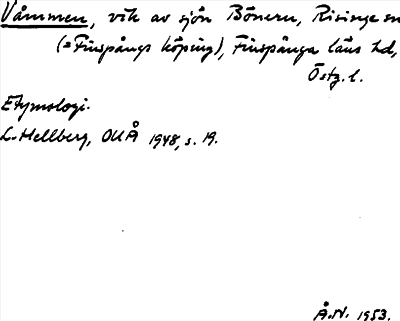 Våmmen, vik av sjön Bönnern, Risinge sn
(=Finspångs köping), Finspånga läns hd,
Östg. l.
Etymologi.
L. Hellberg, OUÅ 1948, s. 19.
Å.N. 1953.